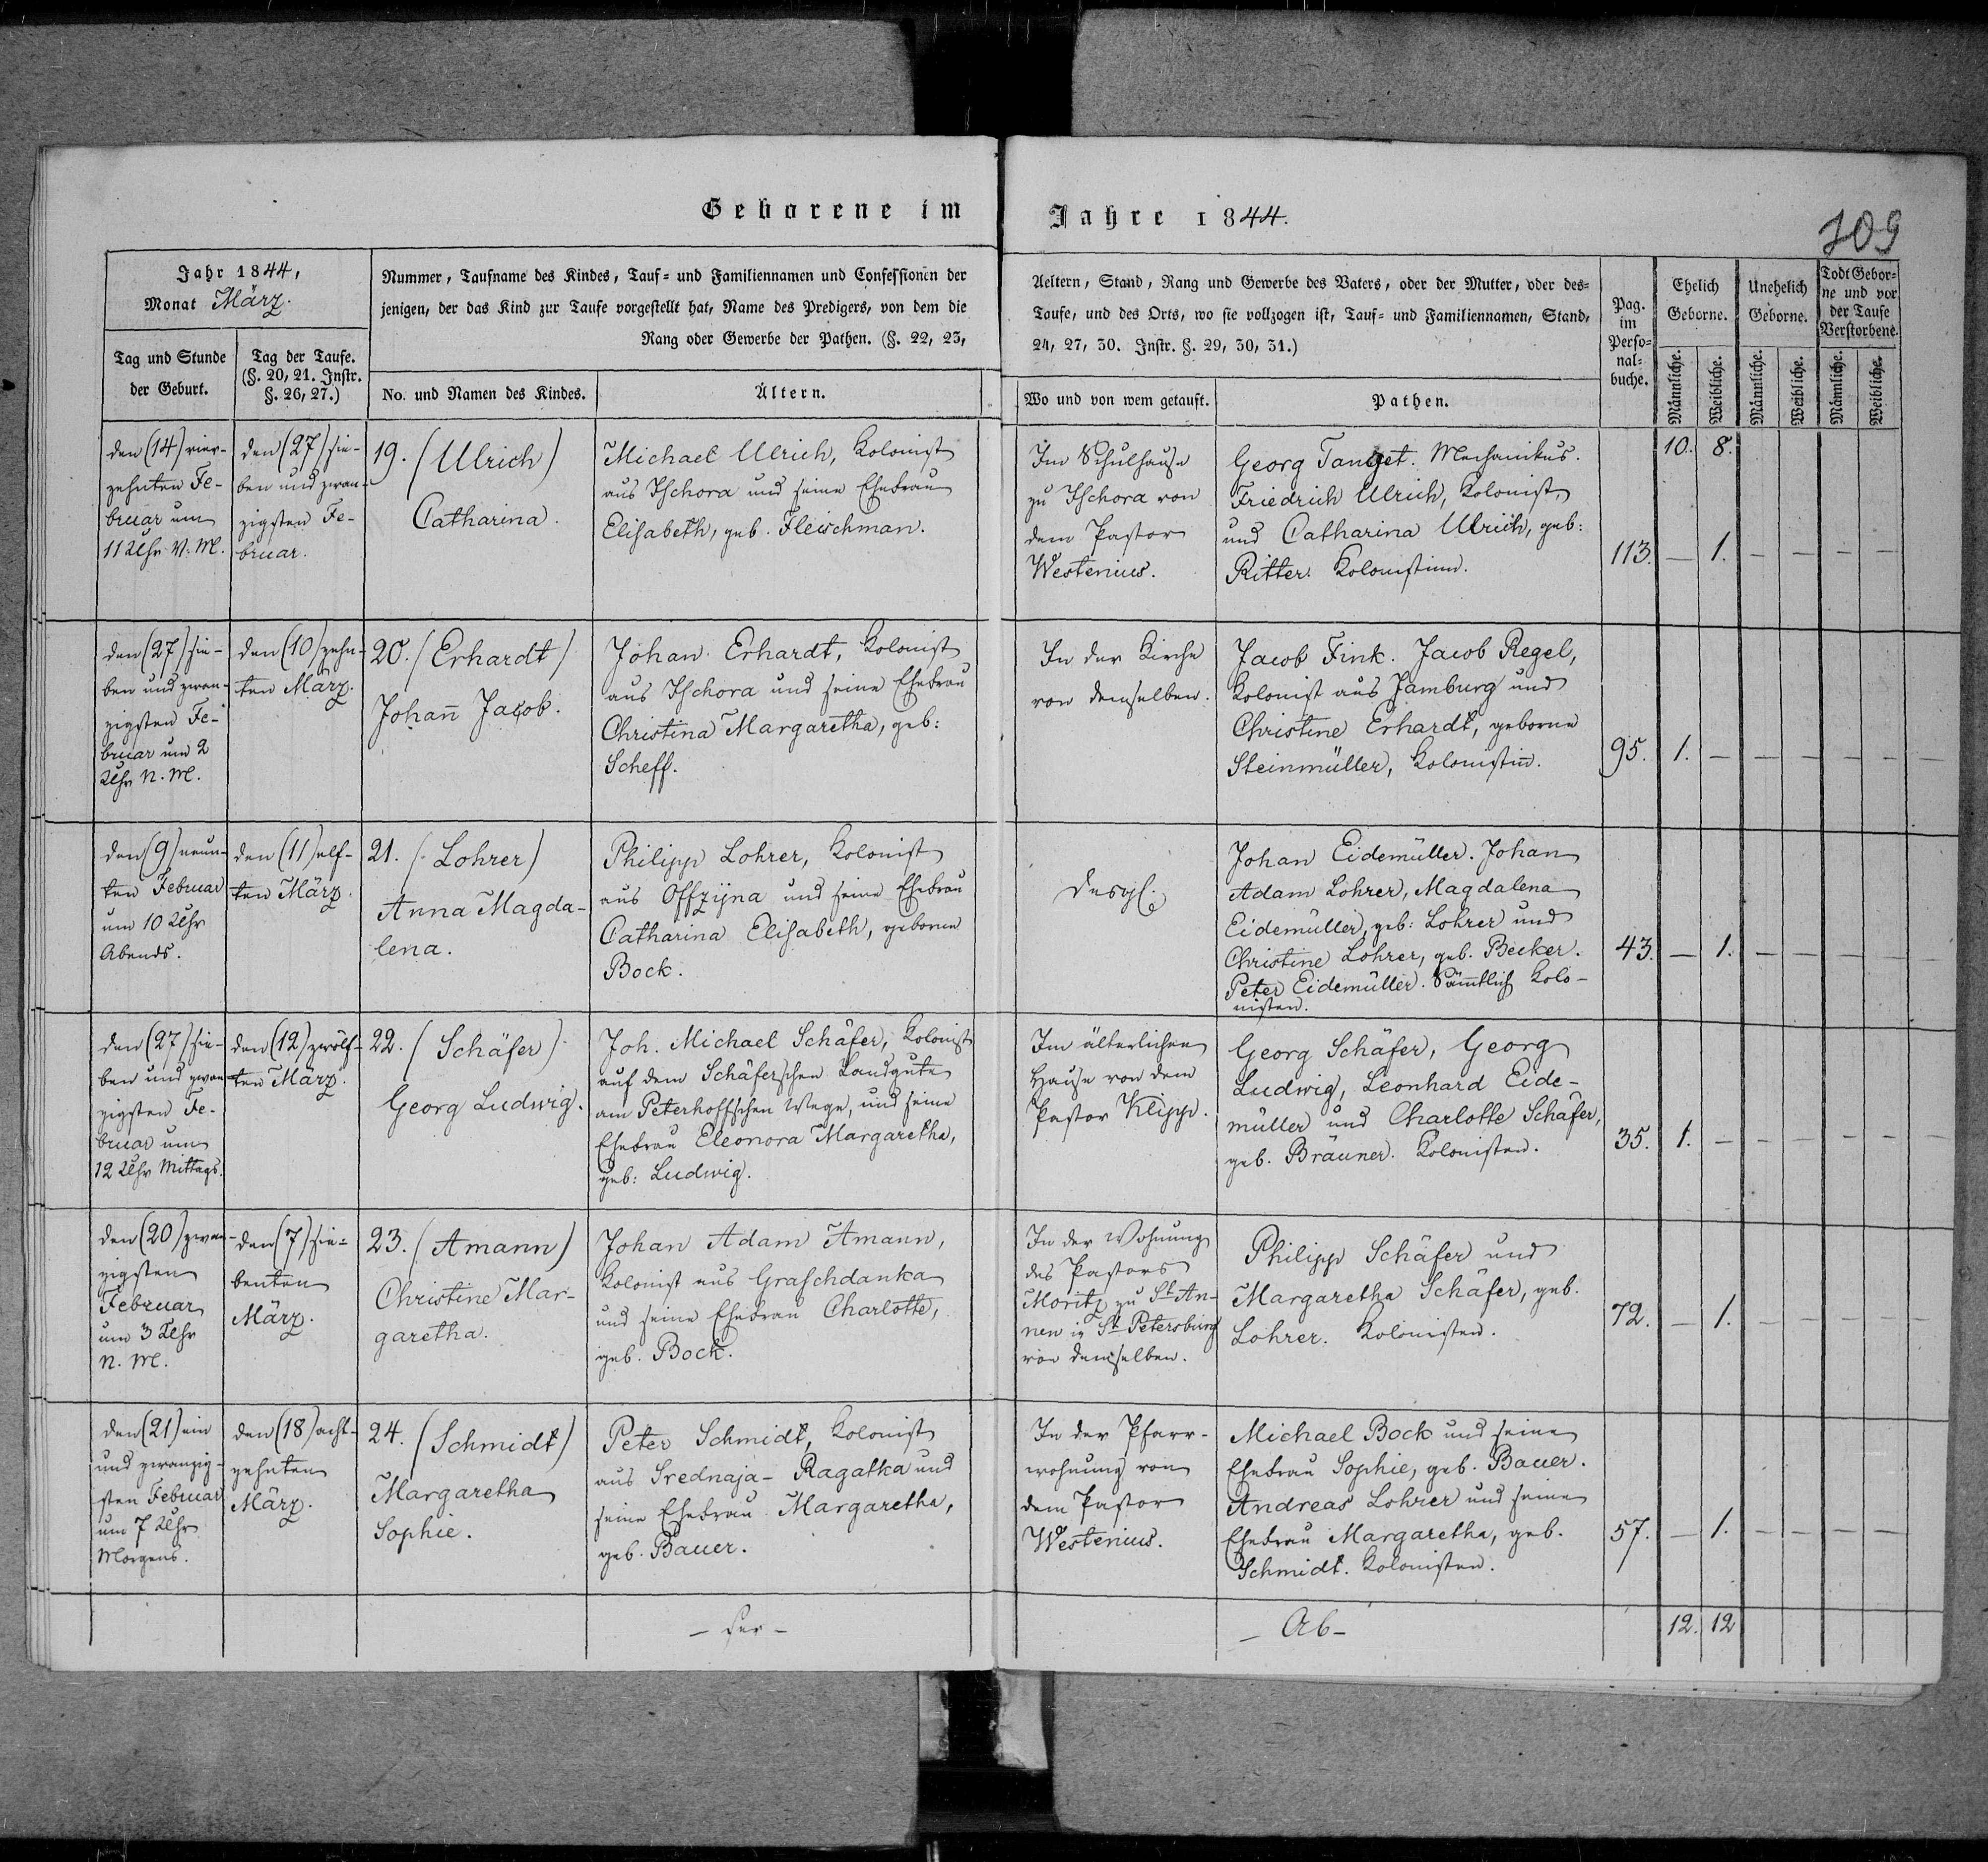 Geborene im Jahre 1844.
109
Jahr 1844,
Monat März.
Tag und Stunde
der Geburt.
Tag der Taufe.
(§. 20, 21. Instr.
§. 26, 27.)
Nummer, Taufname des Kindes, Tauf- und Familiennamen und Confessionen der
jenigen, der das Kind zur Taufe vorgestellt hat, Name des Predigers, von dem die
Rang oder Gewerbe der Pathen. (§. 22, 23,
No. und Namen des Kindes.
Ältern.
Aeltern, Stand, Rang und Gewerbe des Vaters, oder der Mutter, oder des-
Taufe, und des Orts, wo sie vollzogen ist, Tauf- und Familiennamen, Stand,
24, 27, 30. Instr. §. 29, 30, 31.)
Wo und von wem getauft.
Pathen.
Pag.
im
Perso-
nal-
buche.
Ehelich
Geborne.
Unehelich
Geborne.
Todt Gebor-
ne und vor
der Taufe
Verstorbene.
Männliche.
Weibliche.
Männliche.
Weibliche.
Männliche.
Weibliche.
10. 8.
den (14) vier-
zehnten Fe-
bruar um
11 Uhr V. M.
den (27) sie-
ben und zwan-
zigsten Fe-
bruar.
19. (Ulrich)
Catharina.
Michael Ulrich, Kolonist
aus Ischora und seine Ehefrau
Elisabeth, geb. Fleischman.
Im Schulhause
zu Ischora von
dem Pastor
Westenius.
Georg Mechanikus.
Friedrich Ulrich, Kolonist,
und Catharina Ulrich, geb:
Ritter. Kolonistinn.
113. — 1. — — — —
den (27) sie-
ben und zwan-
zigsten Fe-
bruar um 2
Uhr N. M.
den (10) zehn-
ten März.
20. (Erhardt)
Johan̄ Jacob.
Johan Erhardt, Kolonist
aus Ischora und seine Ehefrau
Christina Margaretha, geb:
Scheff.
In der Kirche
von demselben.
Jacob Fink. Jacob Regel,
Kolonist aus Jamburg und
Christine Erhardt, geborne
Steinmüller, Kolonistin̄.
95. 1. — — — — — —
den (9) neun-
ten Februar
um 10 Uhr
Abends.
den (11) elf-
ten März.
21. (Lohrer)
Anna Magda-
lena.
Philipp Lohrer, Kolonist
aus Offzijna und seine Ehefrau
Catharina Elisabeth, geborne
Bock.
desgl.
Johan Eidemüller. Johan
Adam Lohrer, Magdalena
Eidemüller, geb: Lohrer und
Christine Lohrer, geb. Becker.
Peter Eidemüller. Säm̄tlich Kolo-
nisten.
43. — 1. — — — — —
den (27) sie-
ben und zwan-
zigsten Fe-
bruar um
12 Uhr Mittags.
den (12) zwölf-
ten März.
22. (Schäfer)
Georg Ludwig.
Joh. Michael Schäfer, Kolonist
auf dem Schäferschen Landgute
am Peterhoffschen Wege, und seine
Ehefrau Eleonora Margaretha,
geb: Ludwig.
Im älterlichen
Hause von dem
Pastor Klipp.
Georg Schäfer, Georg
Ludwig, Leonhard Eide-
müller und Charlotte Schäfer,
geb. Bräuner. Kolonisten.
35. 1. — — — — — —
den (20) zwan-
zigsten
Februar
um 3 Uhr
N. M.
den (7) sie-
benten
März.
23. (Amann)
Christine Mar-
garetha.
Johan Adam Amann,
Kolonist aus Graschdanka
und seine Ehefrau Charlotte,
geb. Bock.
In der Wohnung
des Pastors
Moritz zu St An-
nen in St Petersburg
von demselben.
Philipp Schäfer und
Margaretha Schäfer, geb.
Lohrer. Kolonisten.
72. — 1. — — — — —
den (21) ein
und zwanzig-
sten Februar
um 7 Uhr
Morgens.
den (18) acht-
zehnten
März.
24. (Schmidt)
Margaretha
Sophie.
Peter Schmidt, Kolonist
aus Srednaja-Ragatka und
seine Ehefrau Margaretha,
geb. Bauer.
In der Pfarr-
wohnung von
dem Pastor
Westenius.
Michael Bock und seine
Ehefrau Sophie, geb. Bauer.
Andreas Lohrer und seine
Ehefrau Margaretha, geb.
Schmidt. Kolonisten.
57. — 1. — — — —
— Ab —
12. 12